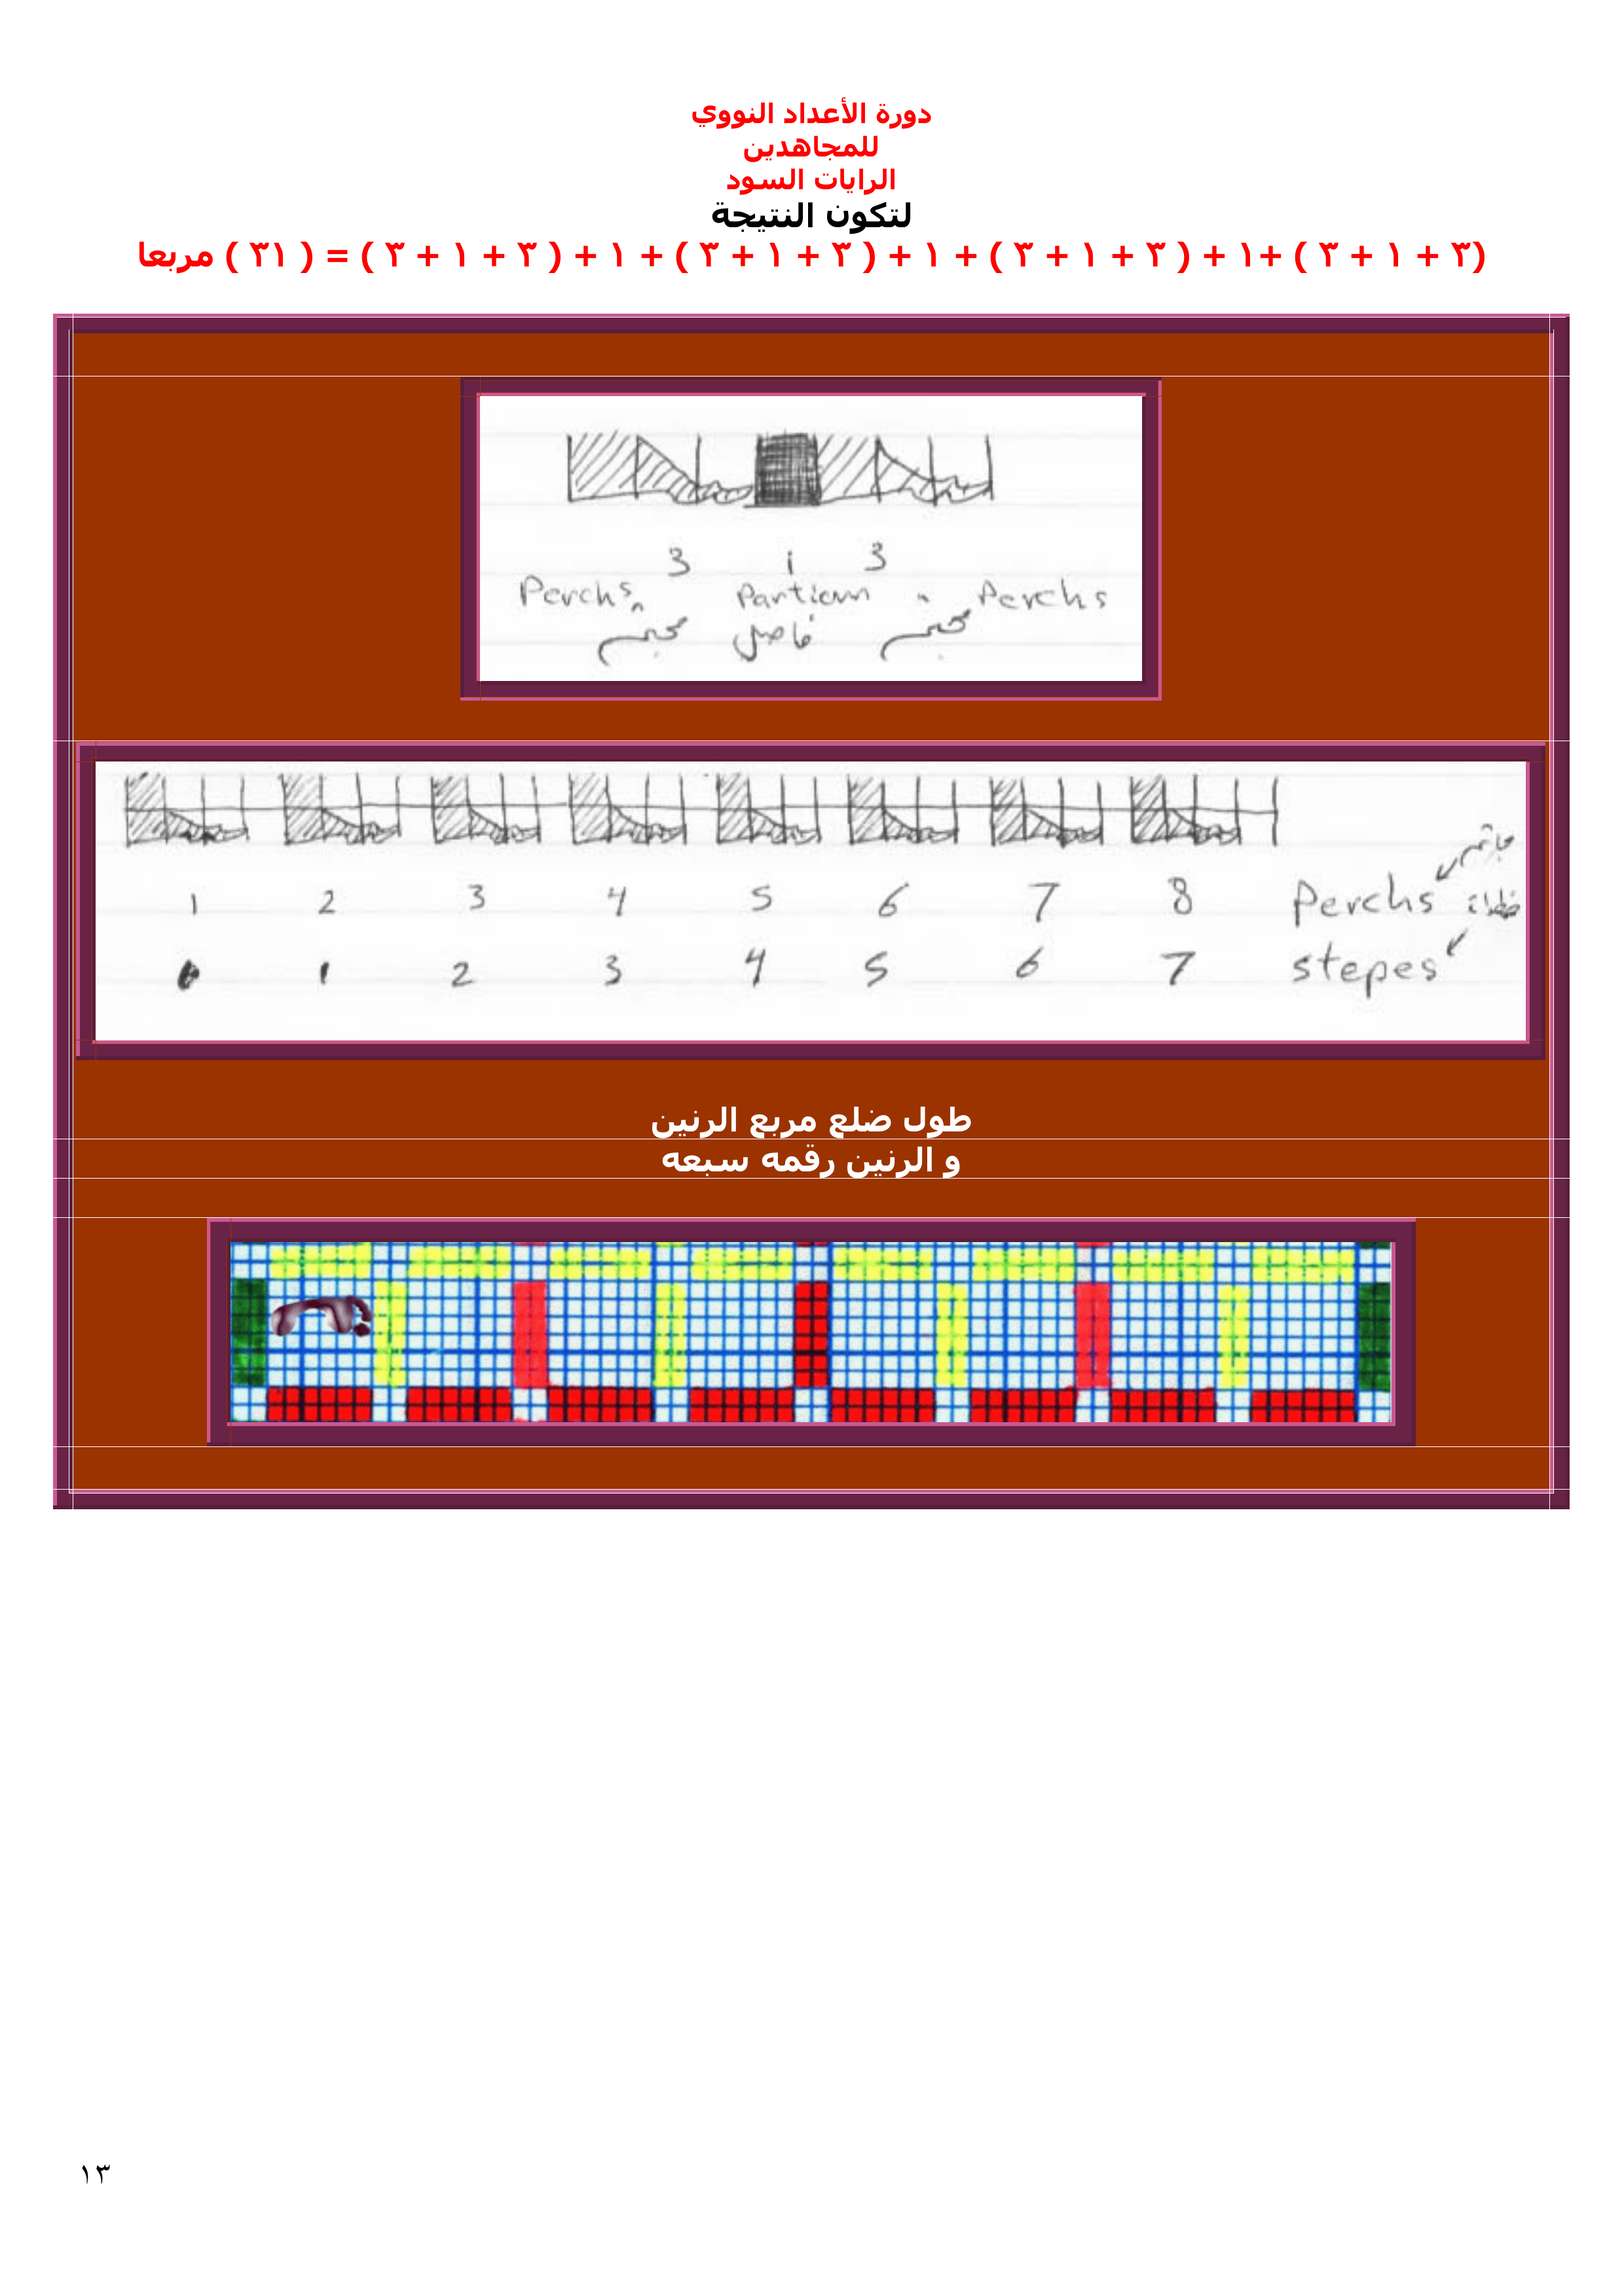 دورة الأعداد النووي
للمجاهدين
الرايات السود
لتكون النتيجة
(٣ + ١ + ٣ ) +١ + ( ٣ + ١ + ٣ ) + ١ + ( ٣ + ١ + ٣ ) + ١ + ( ٣ + ١ + ٣ ) = ( ٣١ ) مربعا
3 1 3
Perchs Partion Perchs
مجثم فاصل مجثم
مجاثم
1 2 3 4 5 6 7 8 Perchs
0 1 2 3 4 5 6 7 stepes
طول ضلع مربع الرنين
و الرنين رقمه سبعه
١٣